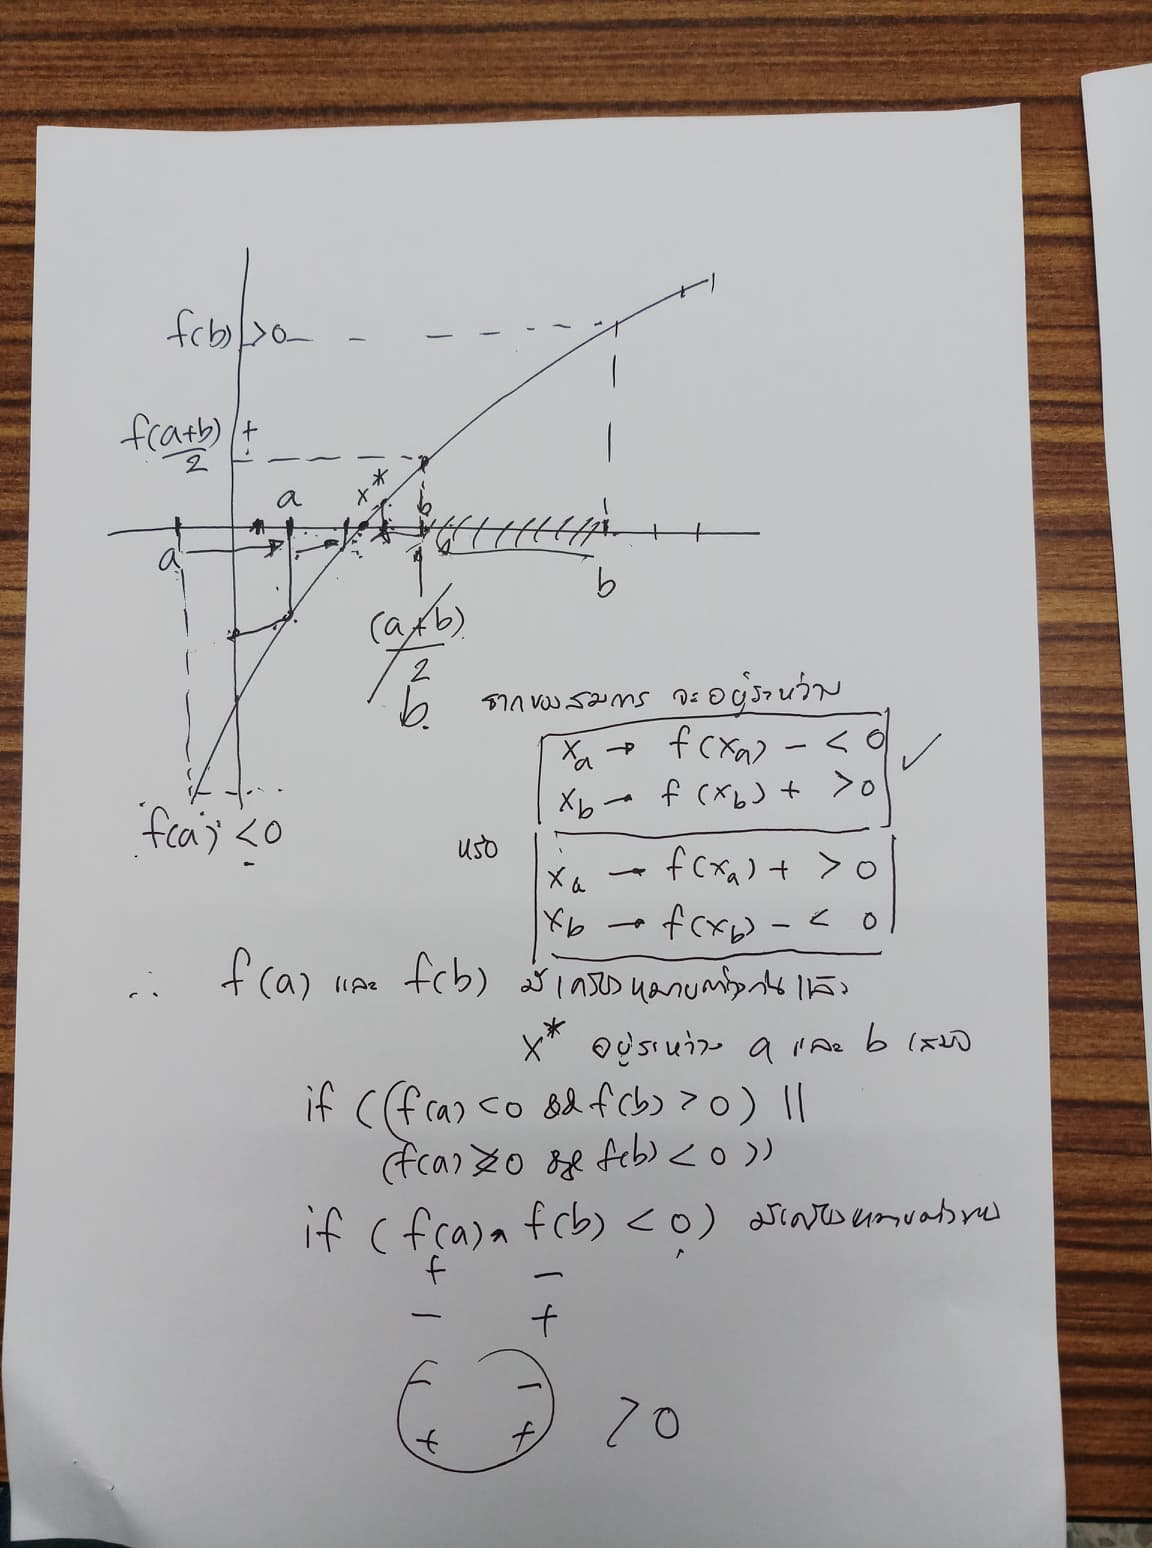 f(b) >0
f(a+b)/2 +
a x* b
a b
(a+b)/2
b.
รากของสมการ จะอยู่ระหว่าง
xa → f(xa) - < 0 ✓
xb → f(xb) + >0
f(a) <0
หรือ
xa → f(xa) + > 0
xb → f(xb) - < 0
∴ f(a) และ f(b) มีเครื่องหมายต่างกันแล้ว
x* อยู่ระหว่าง a และ b เสมอ
if ((f(a) <0 && f(b) >0) ||
(f(a) >0 && f(b) <0))
if (f(a) * f(b) < 0) มีเครื่องหมายต่างกัน
+ -
- +
- -
+ + >0